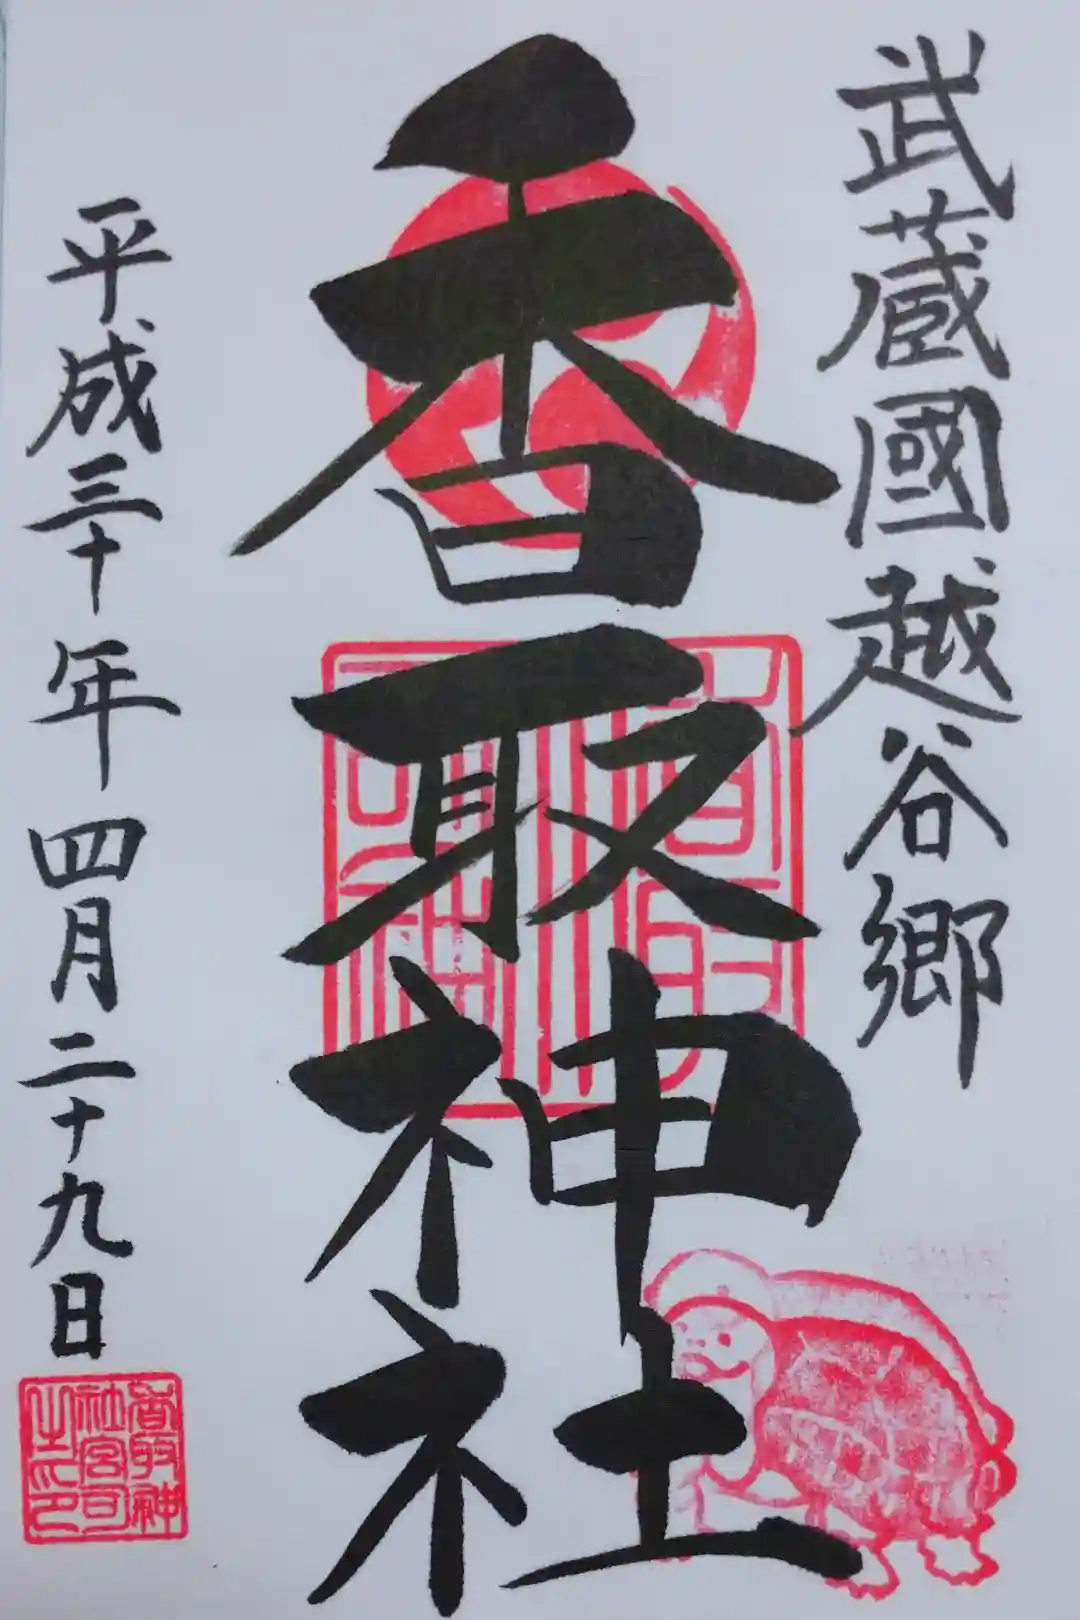 武蔵國越谷郷
香取神社
平成三十年四月二十九日
香取神
社宮司
之印